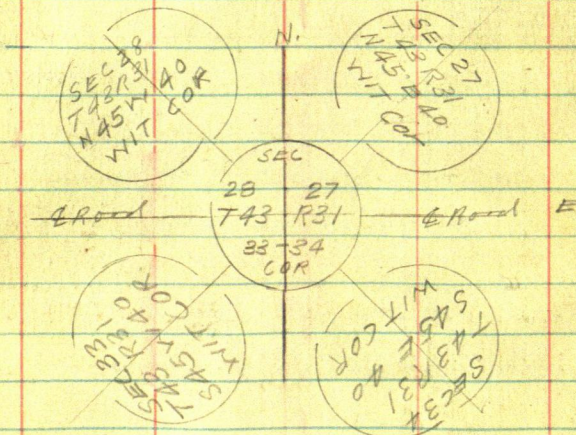 N.
SEC 28
T43R31
N45W 40
WIT COR
SEC 27
T43 R31
N45°E 40
WIT Cor
SEC
28 27
T43 R31
33-34
COR
℄ Road
℄ Road E
SEC 33
T43 R31
S45W 40
WIT COR
SEC 34
T43 R31
S45E 40
WIT COR